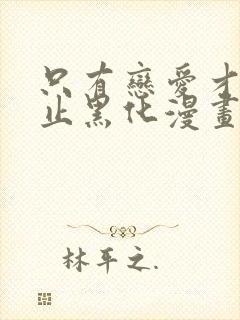 只有戀愛才
止黑化漫畫
林平之.